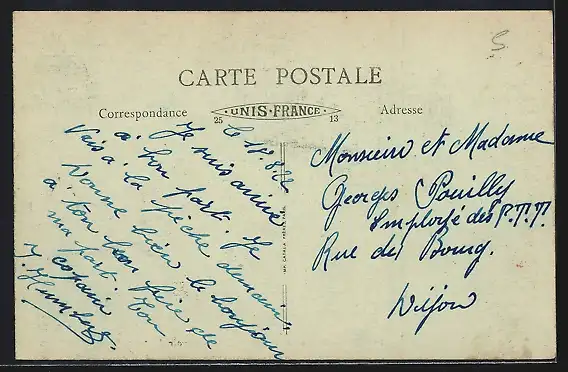 CARTE POSTALE
Correspondance
UNIS-FRANCE
25
13
Adresse
le 18.8.22
Je suis arrivé
à bon port. Je
vais à la pêche demain.
Donne bien le bonjour
à ton bon père de
ma part. Ton
copain
IMP. CATALA FRÈRES, PARIS
Monsieur et Madame
Georges Pouilly
Employé des P.T.T.
Rue des Bourg.
Dijon
5